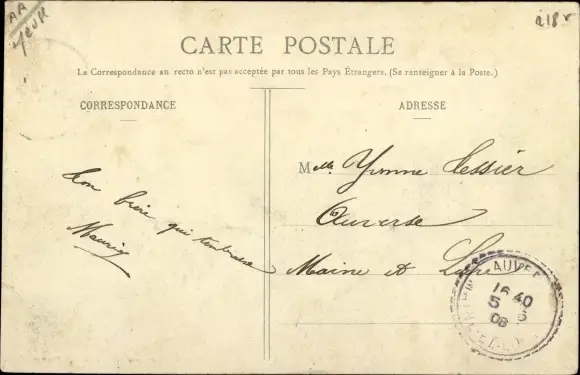 AA
218
CARTE POSTALE
La Correspondance au recto n'est pas acceptée par tous les Pays Étrangers. (Se renseigner à la Poste.)
CORRESPONDANCE
ADRESSE
Ton frère qui
Maurice
Melle Yvonne Tessier
Auverse
Maine et Loire
AUVE
16 40
5
08